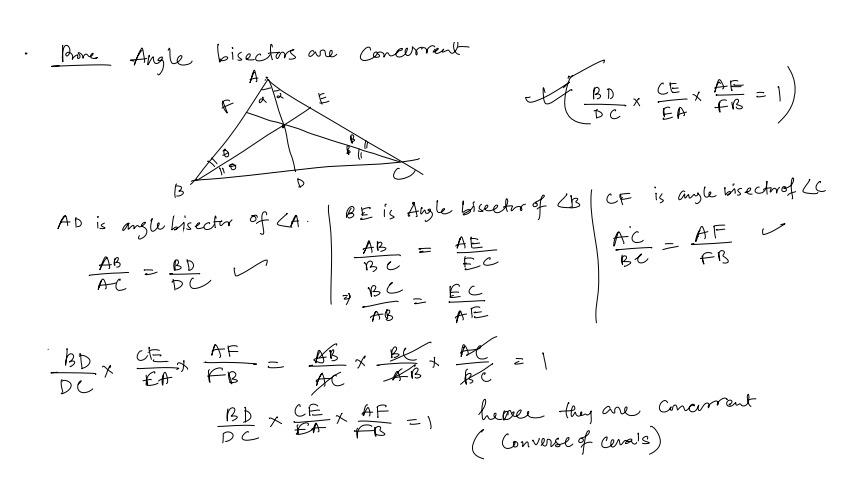 Prove Angle bisectors are Concurrent
( BD/DC × CE/EA × AF/FB = 1 )
A
α α
F
E
θ
θ
β
β
B
D
C
AD is angle bisector of ∠A.
AB/AC = BD/DC
BE is Angle bisector of ∠B
AB/BC = AE/EC
⇒ BC/AB = EC/AE
CF is angle bisector of ∠C
AC/BC = AF/FB
BD/DC × CE/EA × AF/FB = AB/AC × BC/AB × AC/BC = 1
BD/DC × CE/EA × AF/FB = 1 hence they are Concurrent
( Converse of ceva's )